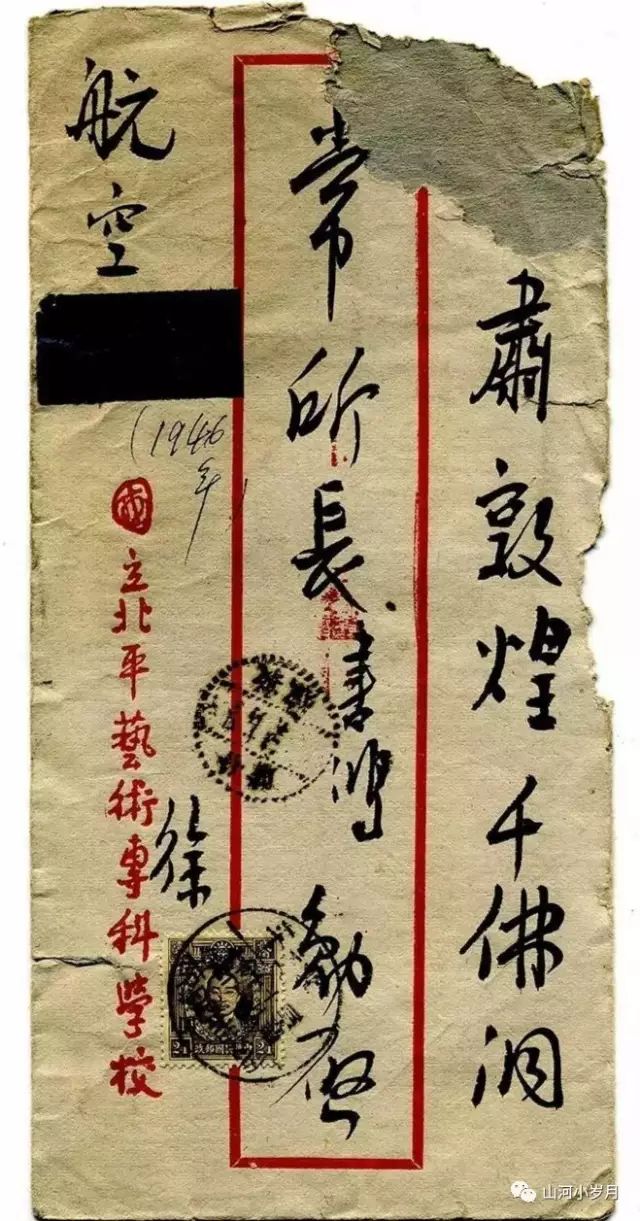 肅敦煌千佛洞
常所長書鴻勛啓
航空
(1946年)
國立北平藝術專科學校
徐
山河小岁月